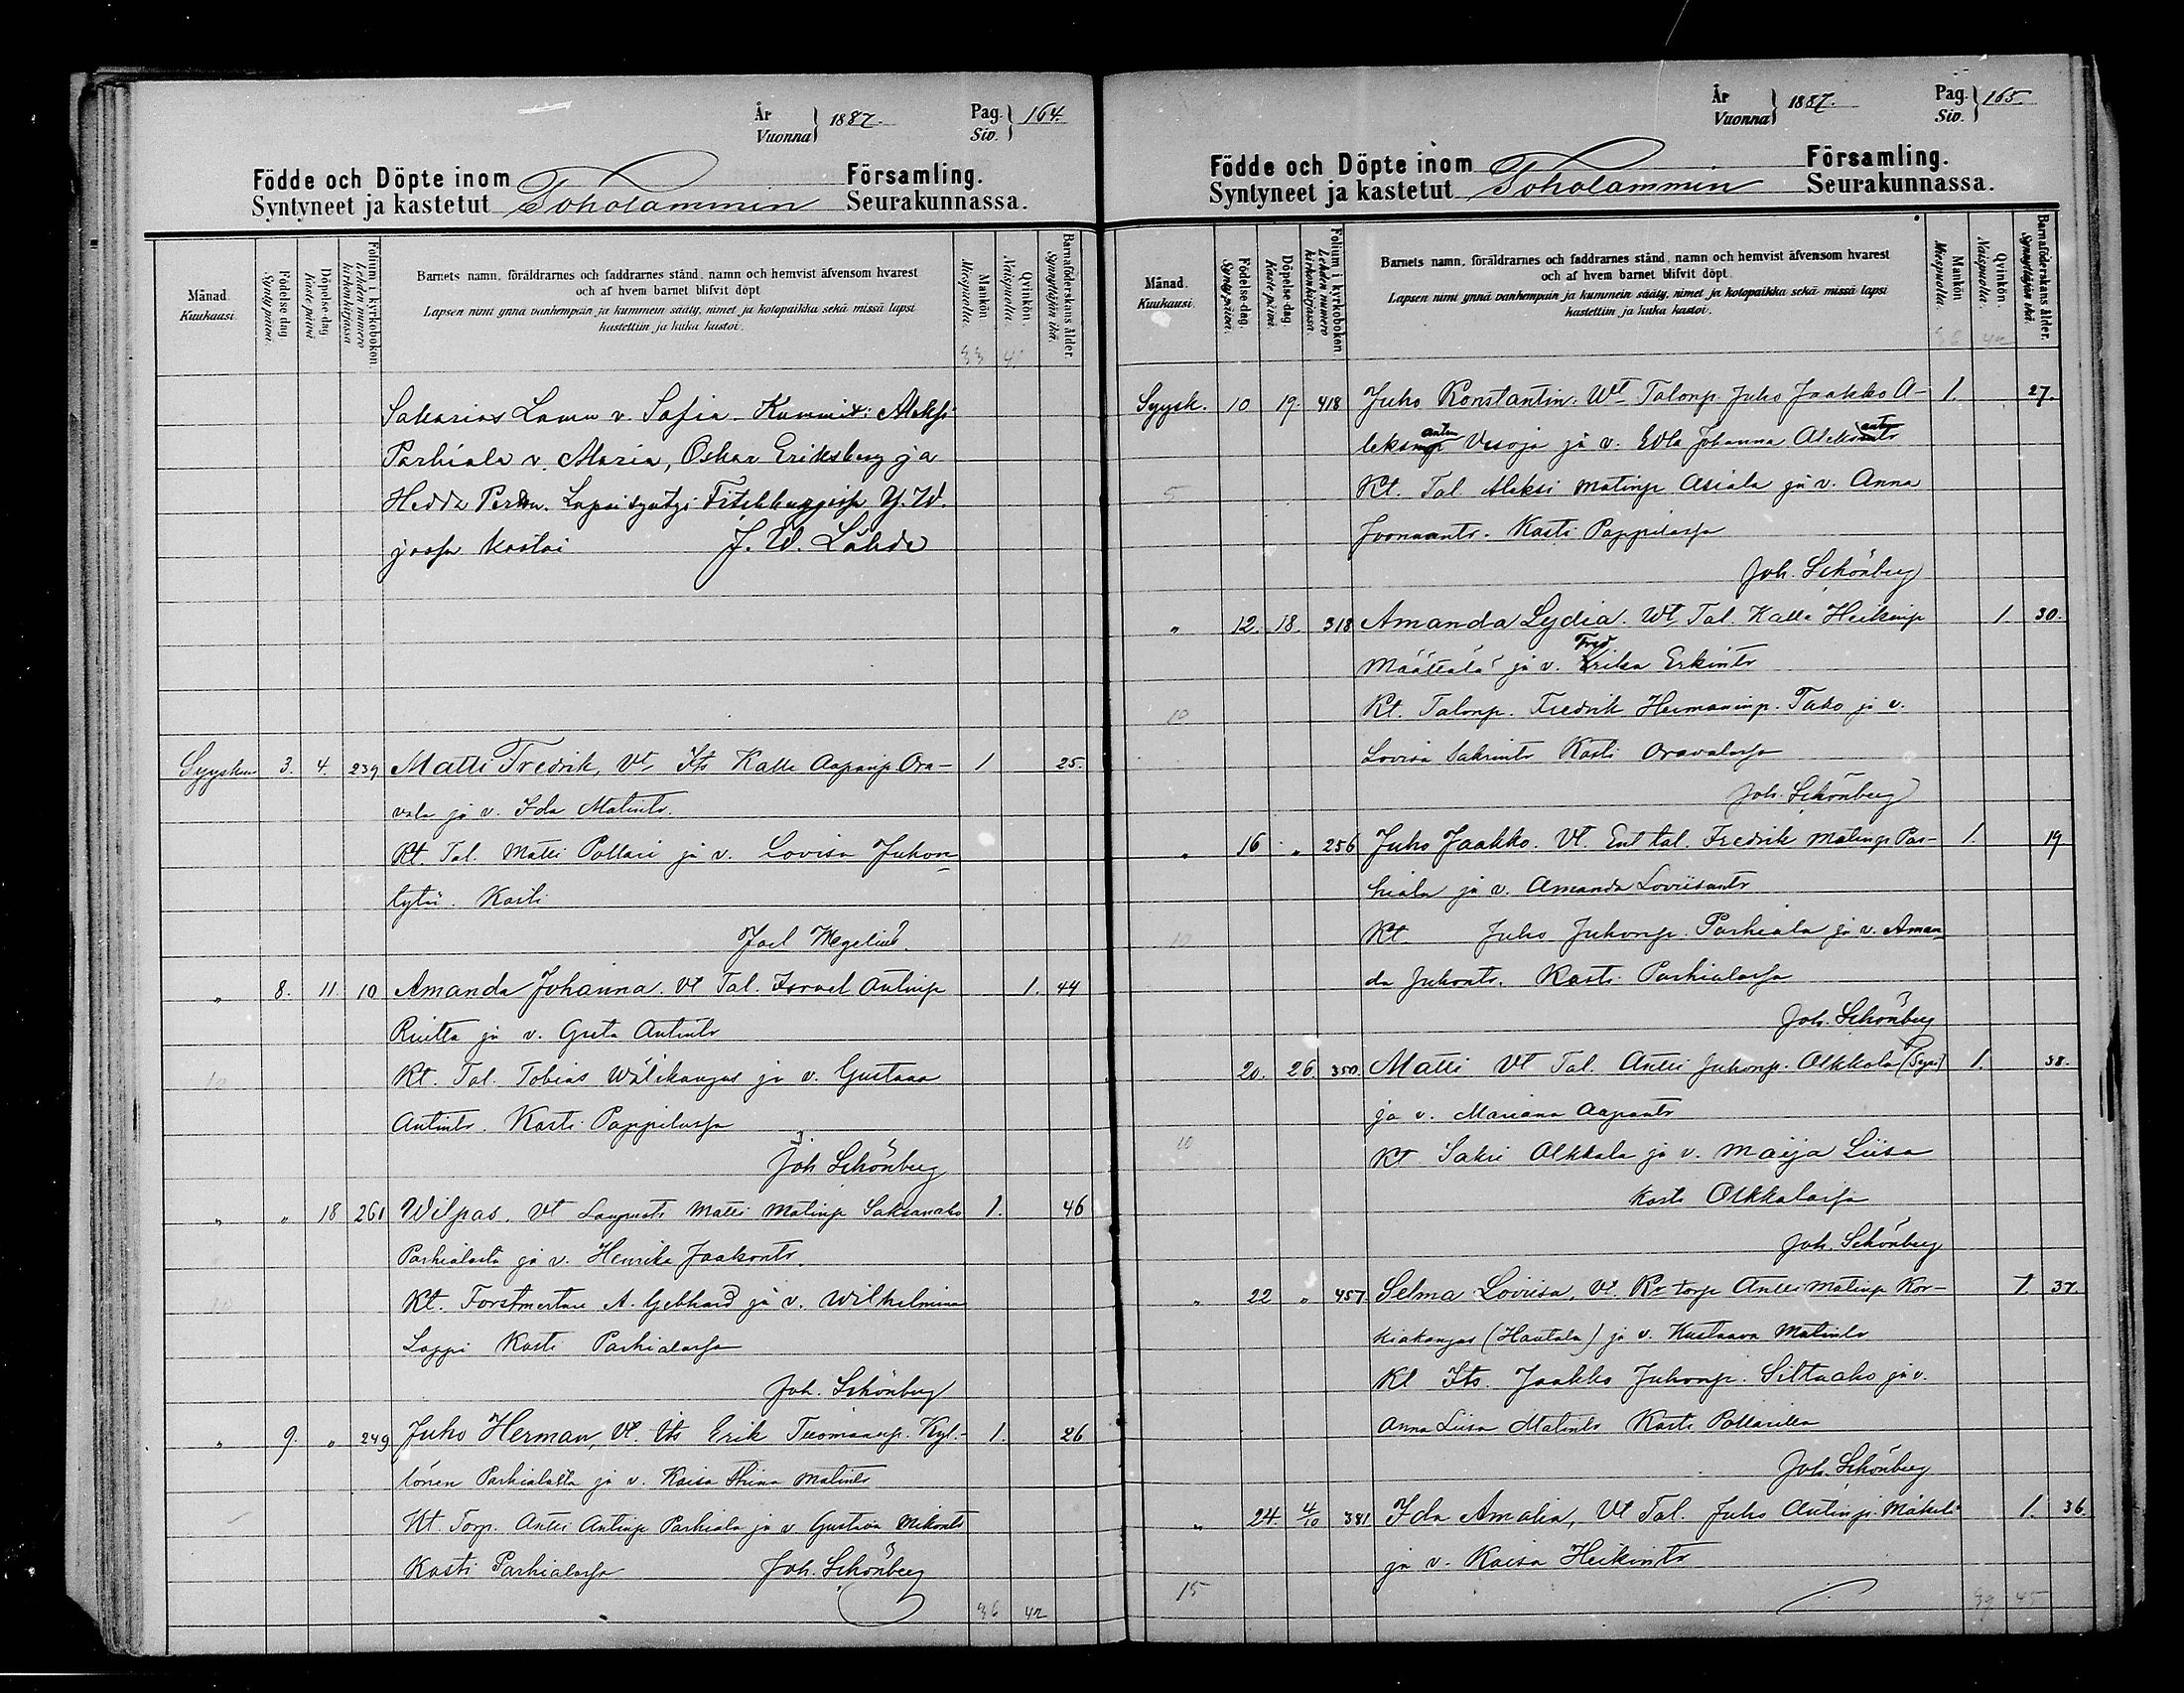 År
Vuonna } 1887. Pag.
Siv. } 164.
Födde och Döpte inom Församling.
Syntyneet ja kastetut Toholammin Seurakunnassa.
Månad.
Kuukausi.
Födelse-dag.
Syntymäpäivä.
Döpelse-dag.
Kaste päivä.
Folium i kyrkoboken
Lehden numero kirkonkirjassa.
Barnets namn, föräldrarnes och faddrarnes stånd, namn och hemvist äfvensom hvarest
och af hvem barnet blifvit döpt
Lapsen nimi ynnä vanhempain ja kummein sääty, nimet ja kotopaikka sekä missä lapsi
kastettiin ja kuka kastoi.
Mankön
Miespuolta.
Qvinkön.
Naispuolta.
Barnaföderskans ålder.
Synnyttäjän ikä.
33 41
Sakarias Lamu v. Sofia. Kummit: Aleks.
Parhiala v. Maria, Oskar Eriksberg ja
Hedda Lapsi syntyi Fitchburgissa Y. W.
jossa kastoi J. W. Lähde
Syyskuu 3. 4. 239 Matti Fredrik, Vt. Its Kalle Aapanp Ora- 1 25.
vala ja v. Ida Matintr.
Kt. Tal. Matti Pollari ja v. Lovisa Juhon
tytär. Kasti
Joel Wegelius
" 8. 11. 10 Amanda Johanna. Vt Tal. Israel Antinp 1. 44
Riutta ja v. Greta Antintr
Kt. Tal. Tobias Wälikangas ja v. Gustava
10
Antintr. Kasti Pappilassa
Joh Schönberg
" " 18 261 Wilpas. Vt Matti Matinp Saksanaho 1. 46
Parhialasta ja v. Henrika Jaakontr.
Kt. Forstmestare A. Gebhard ja v. Wilhelmina
10
Lappi Kasti Parhialassa
Joh. Schönberg
" 9. " 249 Juho Herman, Vt. Its Erik Tuomaanp. Kyl- 1. 26
lönen Parhialasta ja v. Kaisa Stiina Matintr
Kt. Torp. Antti Antinp Parhiala ja v Gustava Mikontr
Kasti Parhialassa Joh. Schönberg
36 42
År
Vuonna } 1887. Pag.
Siv. } 165.
Födde och Döpte inom Församling.
Syntyneet ja kastetut Toholammin Seurakunnassa.
Månad.
Kuukausi.
Födelse-dag.
Syntymäpäivä.
Döpelse-dag.
Kaste päivä.
Folium i kyrkoboken
Lehden numero kirkonkirjassa.
Barnets namn, föräldrarnes och faddrarnes stånd, namn och hemvist äfvensom hvarest
och af hvem barnet blifvit döpt.
Lapsen nimi ynnä vanhempain ja kummein sääty, nimet ja kotopaikka sekä missä lapsi
kastettiin ja kuka kastoi.
Mankön
Miespuolta.
Qvinkön.
Naispuolta.
Barnaföderskans ålder.
Synnyttäjän ikä.
36 42
Syysk. 10 19. 418 Juho Konstantin. Wt. Talonp. Juho Jaakko A- 1. 27.
leks Vesoja ja v. Edla Johanna Aleks
5 Kt. Tal Aleksi Matinp Asiala ja v. Anna
Joonaantr. Kasti Pappilassa
Joh. Schönberg
" 12. 18. 318 Amanda Lydia. Wt. Tal. Kalle Heikinp 1. 30.
Fred.
Määttälä ja v. Erika Erkintr
10 Kt. Talonp. Fredrik Hermaninp. Taho ja v.
Lovisa Sakrintr Kasti Oravalassa
Joh. Schönberg
" 16 " 256 Juho Jaakko. Vt. Ent tal. Fredrik Matinp Par- 1. 19.
hiala ja v. Amanda Loviisantr
10 Kt. Juho Juhonp. Parhiala ja v. Aman
da Juhontr. Kasti Parhialassa
Joh. Schönberg
20. 26. 350. Matti Vt Tal. Antti Juhonp. Olkkola 1. 38.
ja v. Mariana Aapantr
10 Kt Sakri Olkkala ja v. Maija Liisa
Kasti Olkkalassa
Joh. Schönberg
" 22 " 457. Selma Loviisa, Vt. Kr torp Antti Matinp Kor- 1. 37.
kiakangas (Hautala) ja v. Kustaava Matintr
Kt Its. Jaakko Juhonp. Siltaaho ja v.
Anna Liisa Matintr Kasti Pollarilla
Joh. Schönberg
" 24. 4/10 381 Ida Amalia, Vt Tal. Juho Antinp. Mäkelä 1. 36.
ja v. Kaisa Heikintr
15 39 45